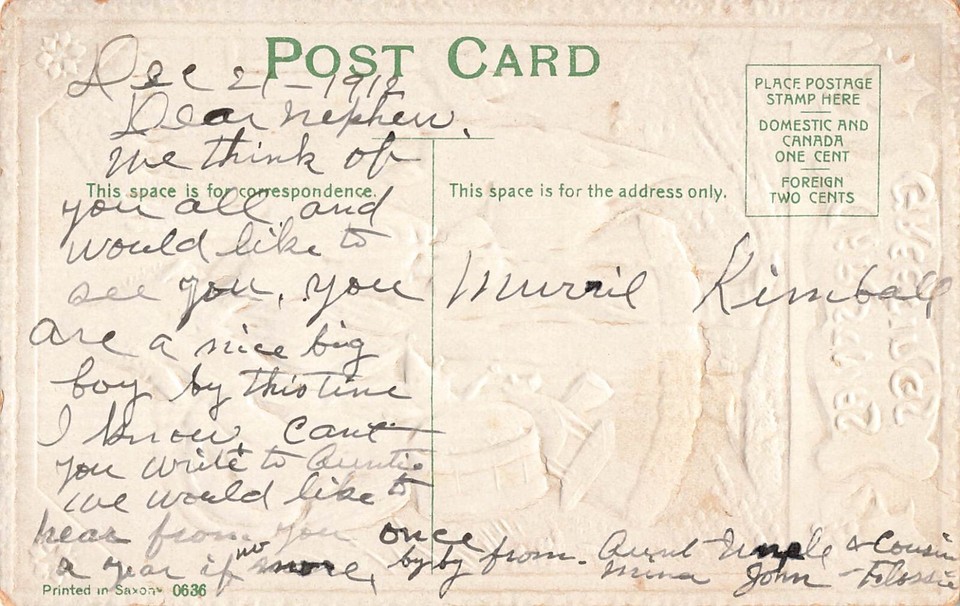 POST CARD
Dec 21 - 1912
Dear nephew.
we think of
This space is for correspondence.
you all and
would like to
see you, you
are a nice big
boy by this time
I know, cant
you write to Auntie
we would like to
hear from you once
a year if no more, by by from - Aunt Uncle & Cousin
Mina John - Flossie
This space is for the address only.
Murril Kimball
PLACE POSTAGE
STAMP HERE
DOMESTIC AND
CANADA
ONE CENT
FOREIGN
TWO CENTS
Printed in Saxony 0636